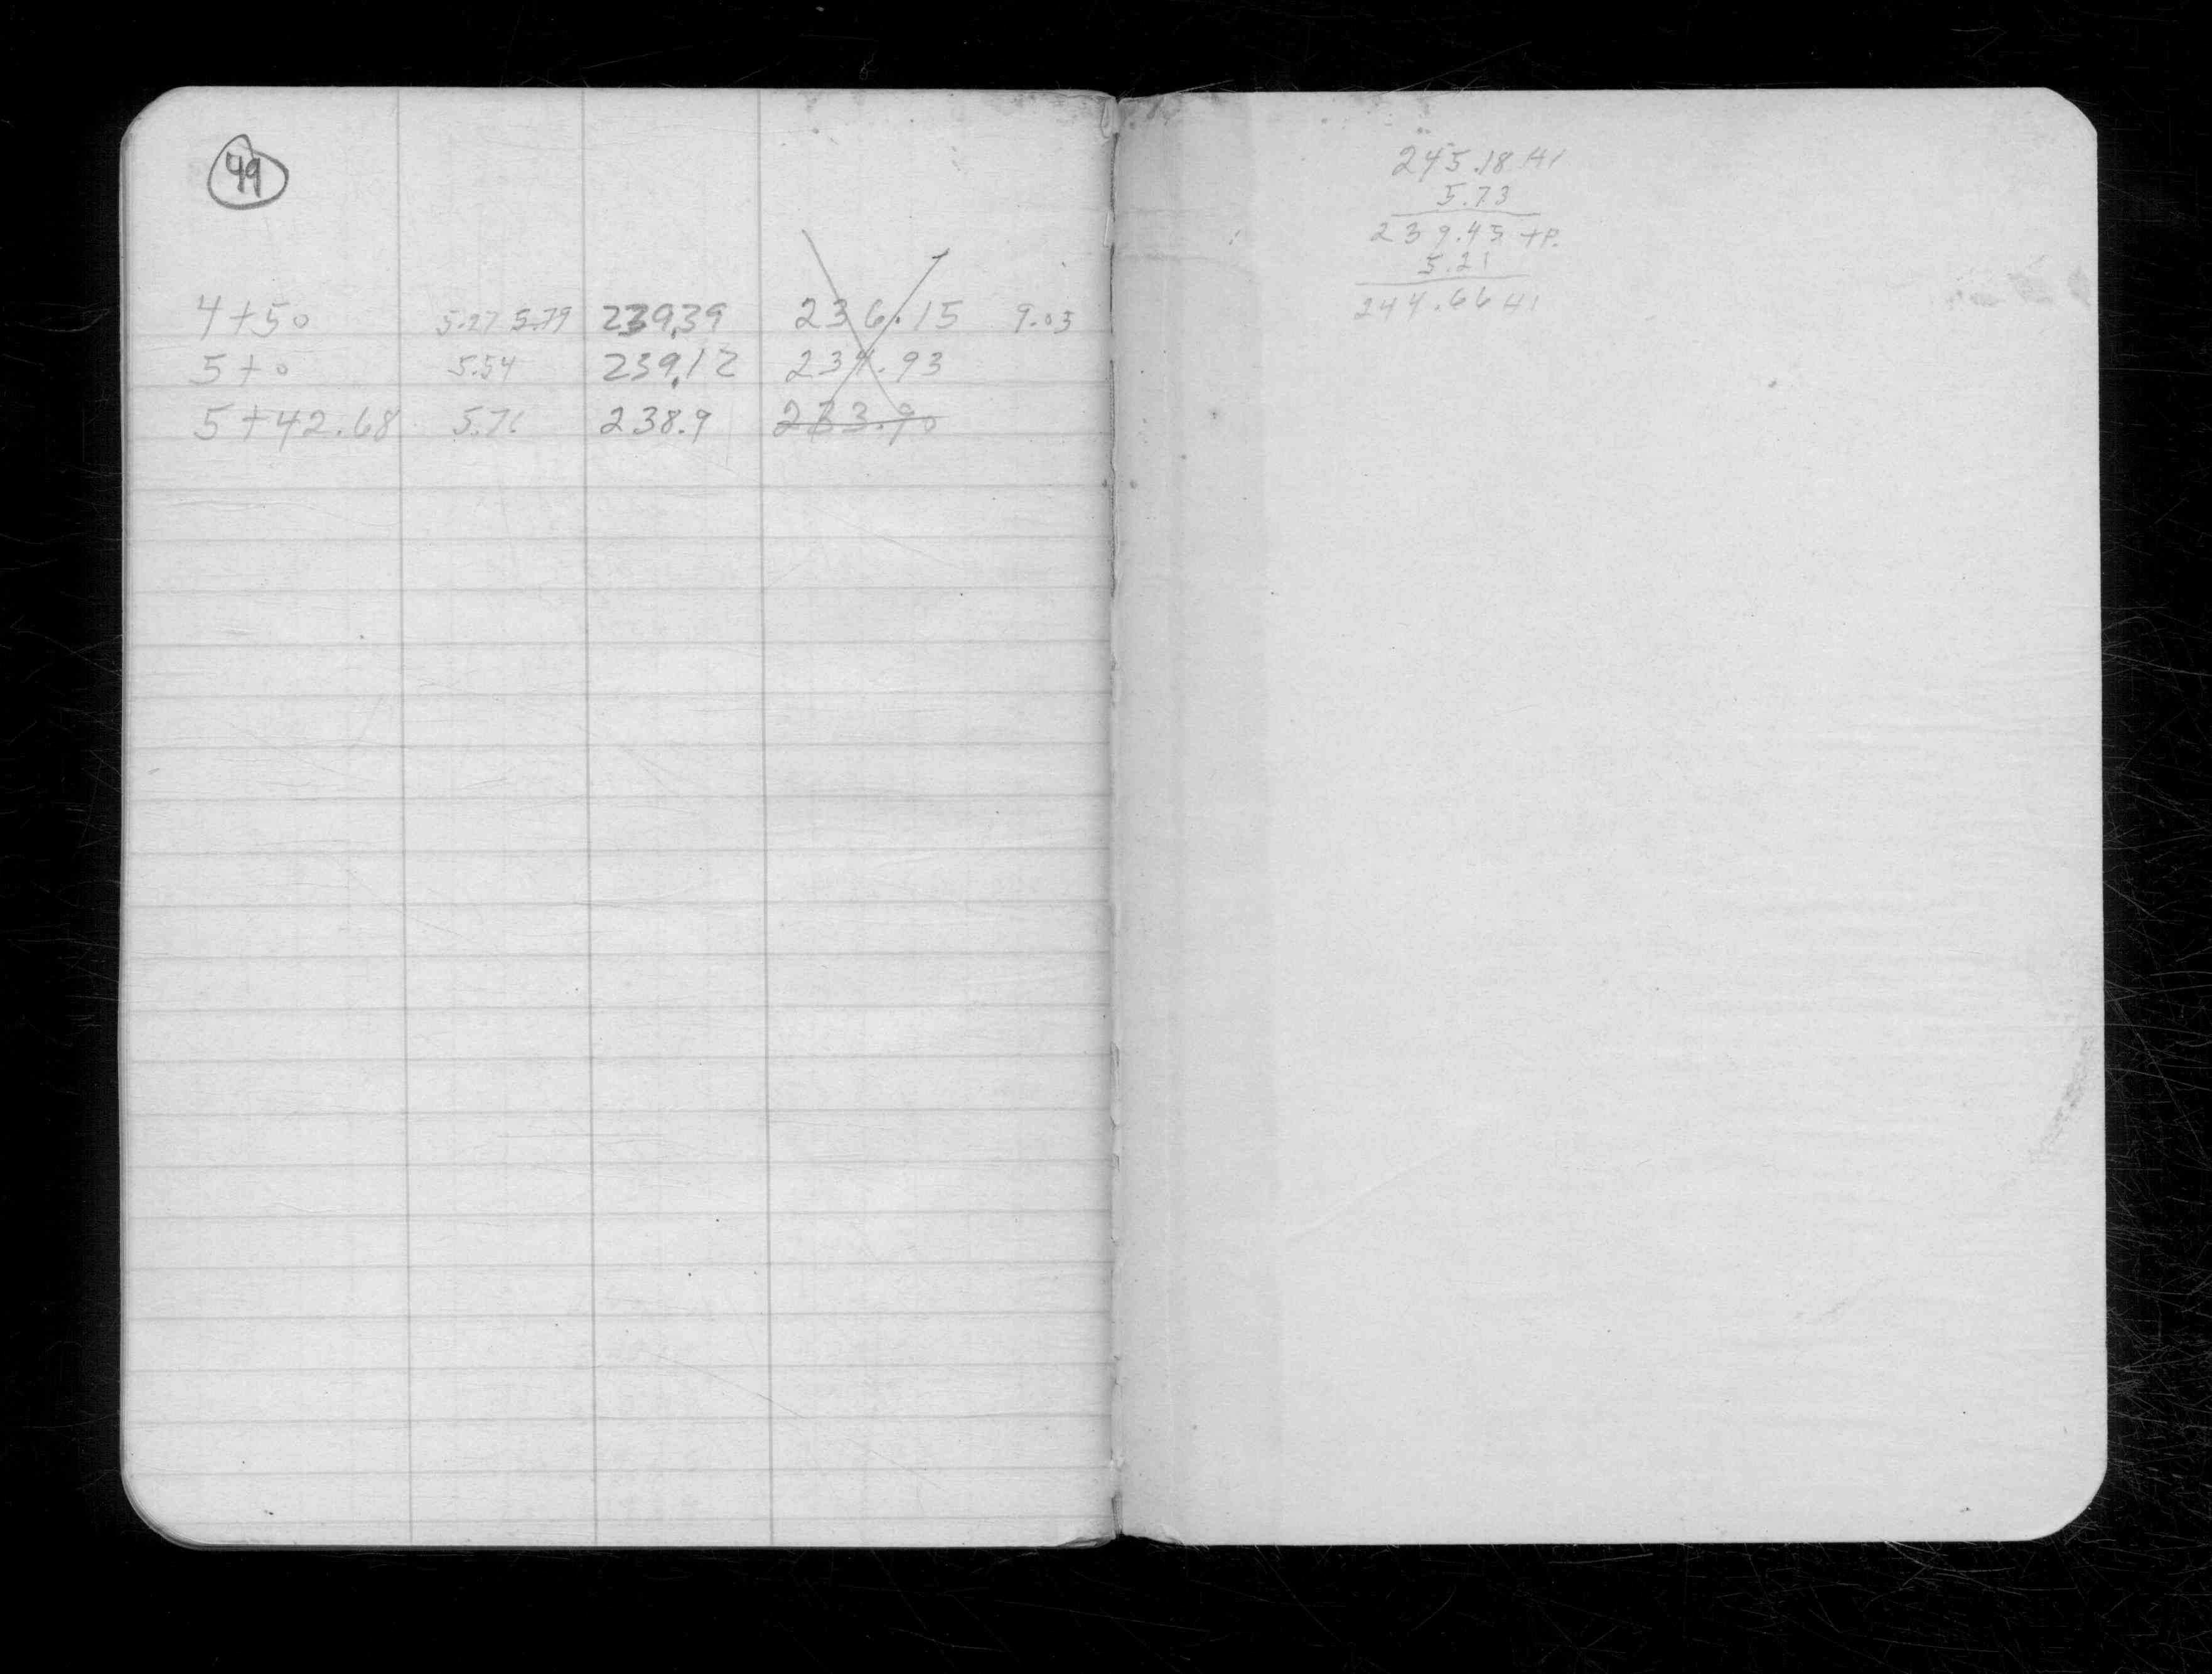 49
4+50 5.27 5.79 239.39 236.15 9.03
5+0 5.54 239.12 234.93
5+42.68 5.76 238.9 233.90
245.18 HI
5.73
239.45 TP.
5.21
244.66 HI